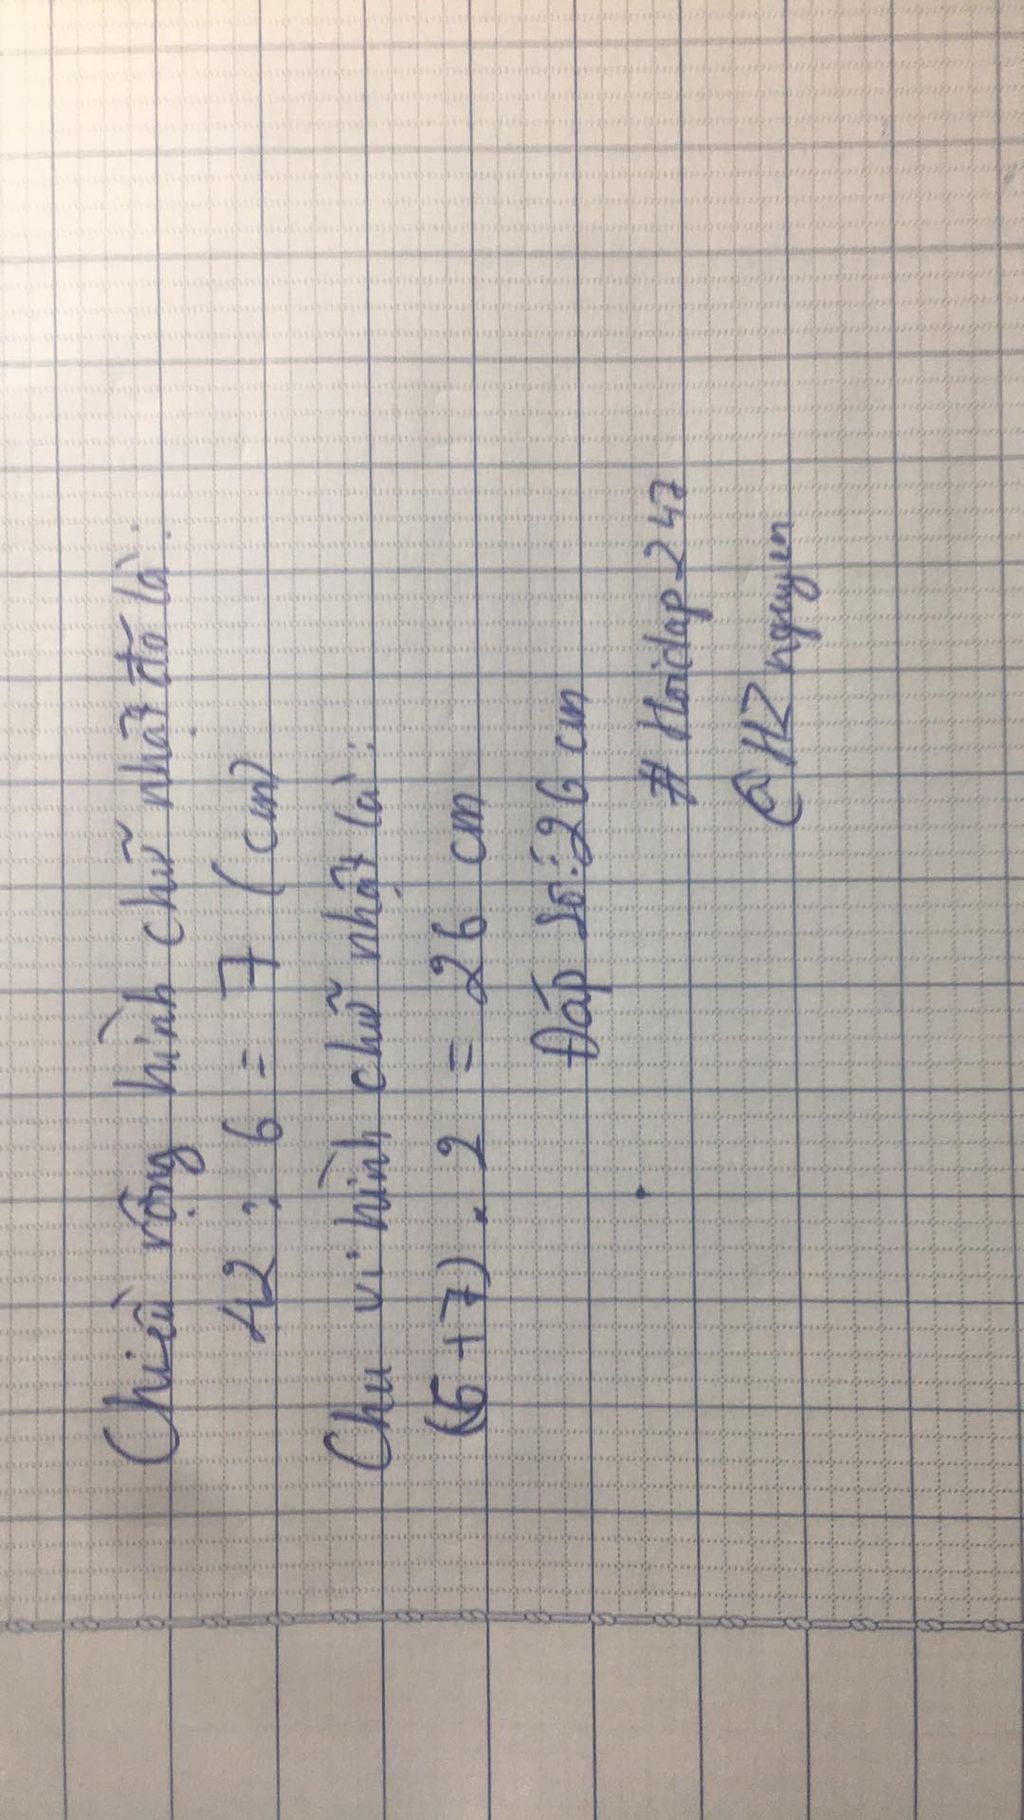 Chiều rộng hình chữ nhật đó là:
42 : 6 = 7 (cm)
Chu vi hình chữ nhật là:
(6+7) . 2 = 26 cm
Đáp số: 26 cm
# Hoidap247
@HZ nguyen